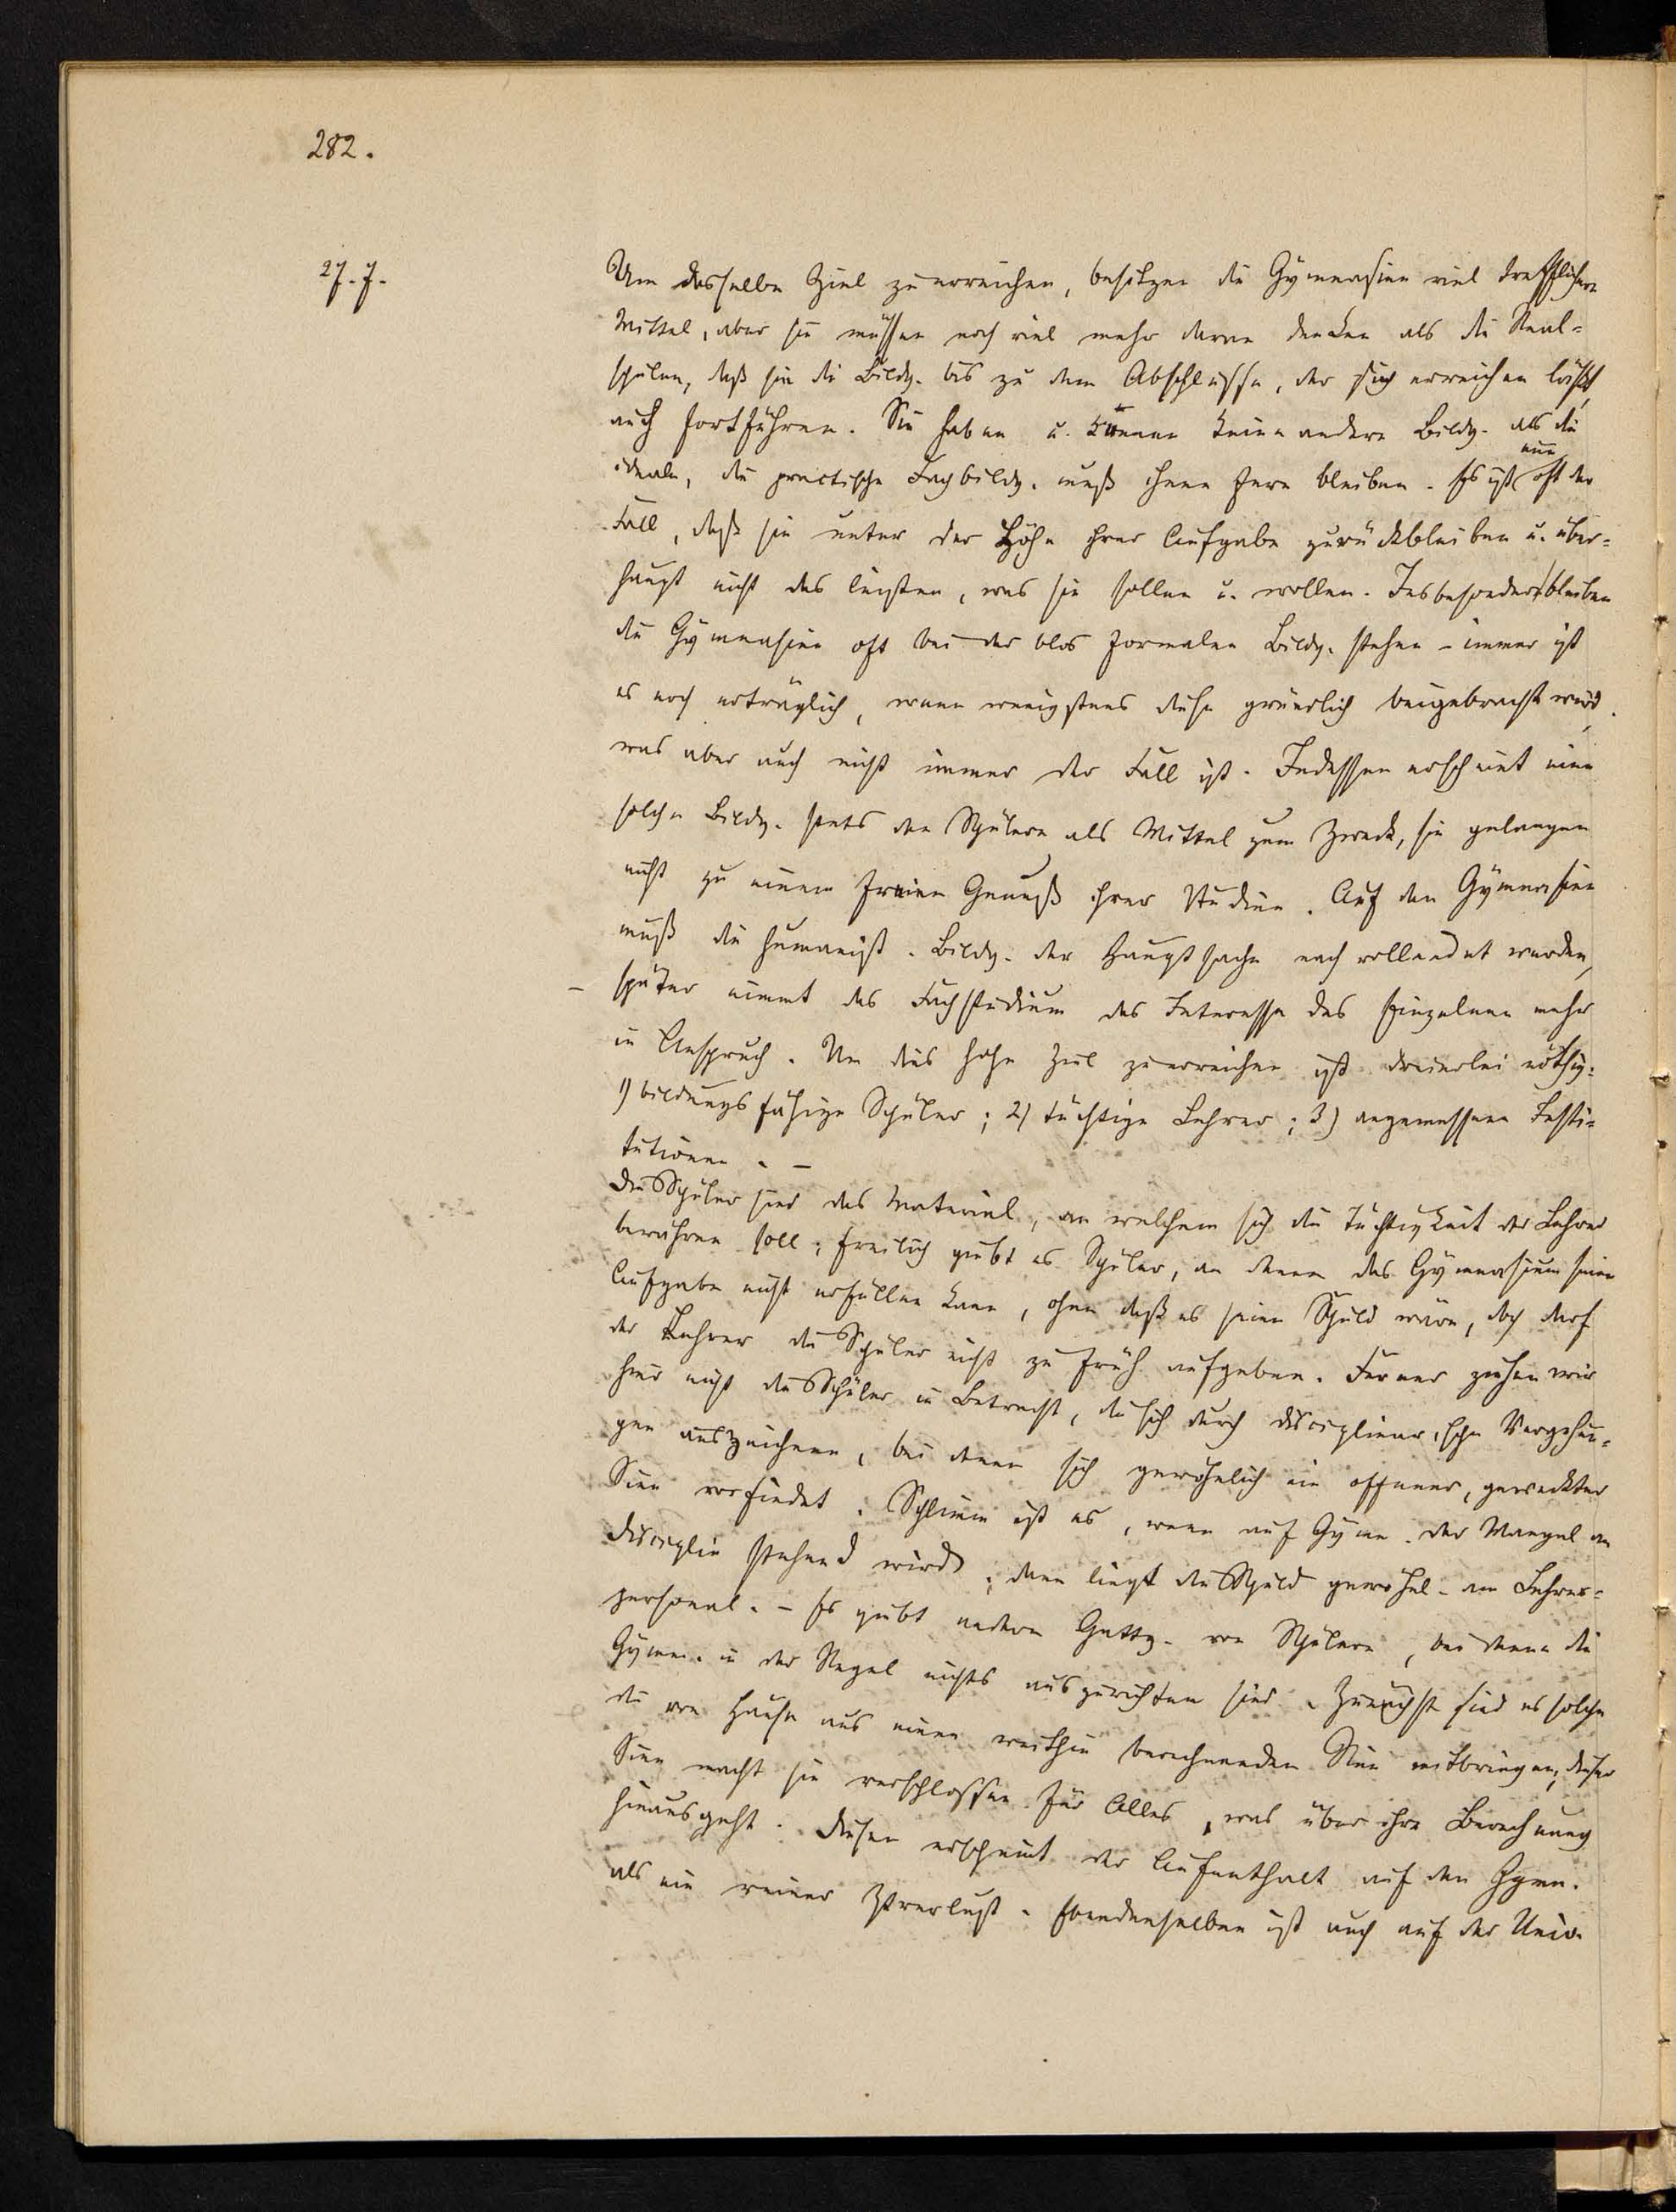 282.
27.7.
Um dasselbe Ziel zu erreichen, besitzen die Gymnasien viel trefflichere
Mittel, aber sie müssen noch viel mehr daran denken als die Real-
schulen, daß sie die Bildg. bis zu dem Abschlusse, der sich erreichen läßt,
auch fortführen. Sie haben u. können keine andere Bildg. als die
ideale, die practische Fachbildg. muß ihnen fern bleiben. Es ist nun oft der
Fall, daß sie unter der Höhe ihrer Aufgabe zurückbleiben u. über-
haupt nicht das leisten, was sie sollen u. wollen. Insbesondere bleiben
die Gymnasien oft bei der blos formalen Bildg. stehen – immer ist
es noch erträglich, wenn wenigstens diese gründlich beigebracht wird,
was aber auch nicht immer der Fall ist. Indessen erscheint eine
solche Bildg. stets den Schülern als Mittel zum Zweck, sie gelangen
nicht zu einem freien Genuß ihrer Studien. Auf den Gymnasien
muß die humanist. Bildg. der Hauptsache nach vollendet werden,
– später nimmt das Fachstudium das Interesse des Einzelnen mehr
in Anspruch. Um dies hohe Ziel zu erreichen ist dreierlei nöthig:
1) bildungsfähige Schüler; 2) tüchtige Lehrer; 3) angemessene Insti-
tutionen. –
Die Schüler sind das Material, an welchem sich die Tüchtigkeit der Lehrer
bewähren soll; freilich giebt es Schüler, an denen das Gymnasium seine
Aufgabe nicht erfüllen kann, ohne daß es seine Schuld wäre, doch darf
der Lehrer die Schüler nicht zu früh aufgeben. Ferner ziehen wir
hier nicht die Schüler in Betracht, die sich durch disciplinarische Vergehun-
gen auszeichnen, bei denen sich gewöhnlich ein offener, geweckter
Sinn vorfindet. Schlimm ist es, wenn auf Gymn. der Mangel an
Disciplin stehend wird; dann liegt die Schuld gewöhnl. am Lehrer-
personal. – Es giebt andere Gattg. von Schülern, bei denen die
Gymn. in der Regel nichts auszurichten sind. Zunächst sind es solche
die von Hause aus einen weithin berechnenden Sinn mitbringen, dieser
Sinn macht sie verschlossen für Alles, was über ihre Berechnung
hinausgeht. Diesen erscheint der Aufenthalt auf den Gymn.
als ein reiner Ztverlust. Ebendenselben ist auch auf der Univ.